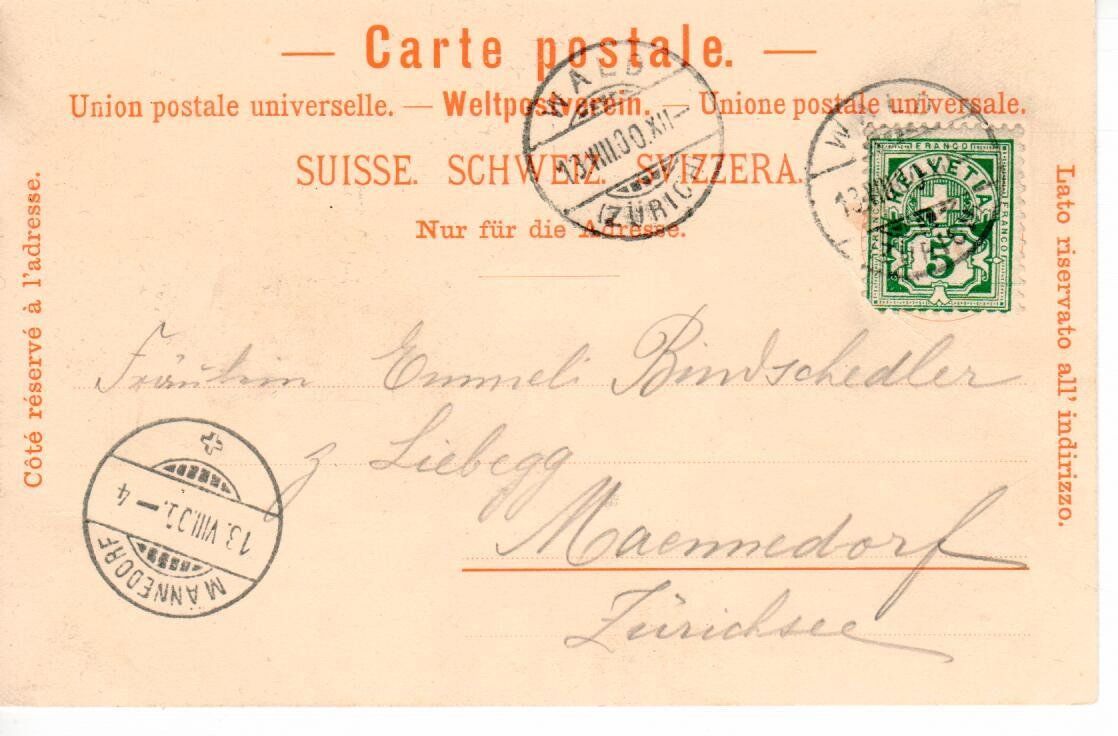 — Carte postale. —
Union postale universelle. — Weltpostverein. — Unione postale universale.
SUISSE. SCHWEIZ. SVIZZERA.
Nur für die Adresse.
Côté réservé à l'adresse.
Lato riservato all' indirizzo.
WALD
13.VIII.00.XII—
(ZÜRICH)
FRANCO
HELVETIA
FRANCO
5
Fräulein Emmeli Bindschedler
z Liebegg
Maennedorf
Zürichsee
13.VIII.00.—4
MÄNNEDORF